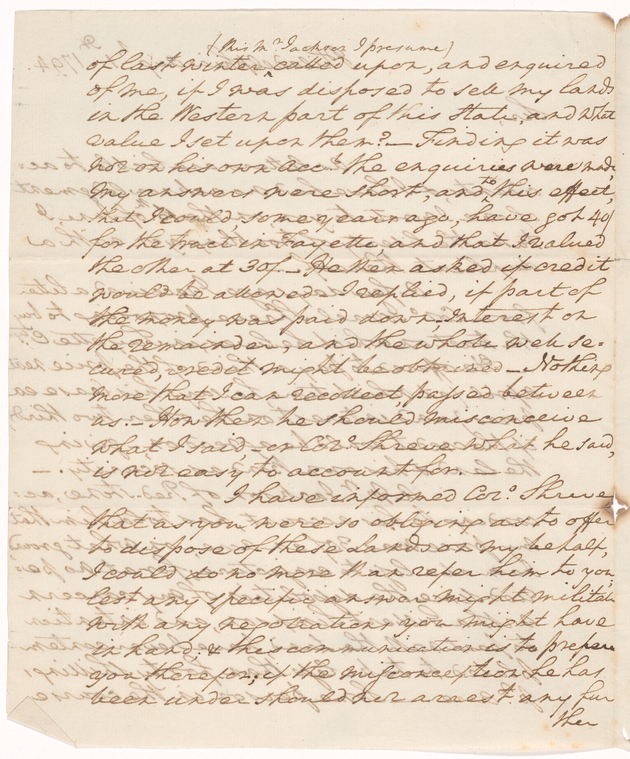 (this Mr. Jackson I presume)
of last winter ^ called upon, and enquired
of me, if I was disposed to sell my lands
in the Western part of this State, and what
value I set upon them? — Finding it was
not on his own acct. the enquiries were made,
my answers were short, and to this effect,
that I could, some years ago, have got 40/
for the tract in Fayette, and that I valued
the other at 30/. — He then asked if credit
would be allowed — I replied, if part of
the money was paid down, Interest on
the remainder, and the whole well se-
cured, credit might be obtained — Nothing
more that I can recollect, passed between
us. — How then he should misconceive
what I said, or Colo. Shreve what he said,
is not easy to account for. —
I have informed Colo. Shreve
that as you were so obliging as to offer
to dispose of these Lands on my behalf,
I could do no more than refer him to you
lest any specific answer might militate
with any negotiations you might have
in hand. & this communication is to prepare
you therefor; if the misconception he has
been under should not arrest any fur
ther